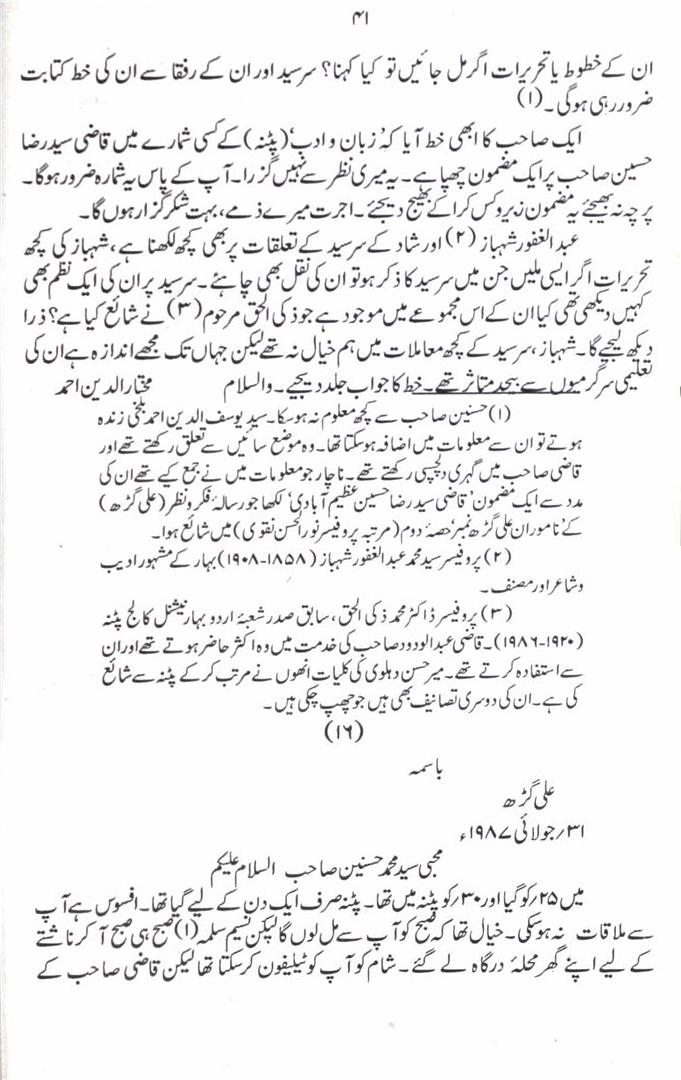 ۴۱
ان کے خطوط یا تحریرات اگر مل جائیں تو کیا کہنا؟ سرسید اور ان کے رفقا سے ان کی خط کتابت
ضرور رہی ہوگی۔ (۱)
ایک صاحب کا ابھی خط آیا کہ ’زبان و ادب‘ (پٹنہ) کے کسی شمارے میں قاضی سید رضا
حسین صاحب پر ایک مضمون چھپا ہے۔ یہ میری نظر سے نہیں گزرا۔ آپ کے پاس یہ شمارہ ضرور ہوگا۔
پرچہ نہ بھیجئے یہ مضمون زیروکس کرا کے بھیج دیجئے۔ اجرت میرے ذمے، بہت شکر گزار ہوں گا۔
عبدالغفور شہباز (۲) اور شاد کے سرسید کے تعلقات پر بھی کچھ لکھنا ہے، شہباز کی کچھ
تحریرات اگر ایسی ملیں جن میں سرسید کا ذکر ہو تو ان کی نقل بھی چاہئے۔ سرسید پر ان کی ایک نظم بھی
کہیں دیکھی تھی کیا ان کے اس مجموعے میں موجود ہے جو ذکی الحق مرحوم (۳) نے شائع کیا ہے؟ ذرا
دیکھ لیجیے گا۔ شہباز، سرسید کے کچھ معاملات میں ہم خیال نہ تھے لیکن جہاں تک مجھے اندازہ ہے ان کی
تعلیمی سرگرمیوں سے بیحد متاثر تھے۔ خط کا جواب جلد دیجیے۔ والسلام مختار الدین احمد
(۱) حسنین صاحب سے کچھ معلوم نہ ہوسکا۔ سید یوسف الدین احمد بلخی زندہ
ہوتے تو ان سے معلومات میں اضافہ ہوسکتا تھا۔ وہ موضع سائیں سے تعلق رکھتے تھے اور
قاضی صاحب میں گہری دلچسپی رکھتے تھے۔ ناچار جو معلومات میں نے جمع کیے تھے ان کی
مدد سے ایک مضمون ’قاضی سید رضا حسین عظیم آبادی‘ لکھا جو رسالۂ فکر و نظر (علی گڑھ)
کے ’ناموران علی گڑھ نمبر‘ حصۂ دوم (مرتبہ پروفیسر نورالحسن نقوی) میں شائع ہوا۔
(۲) پروفیسر سید محمد عبدالغفور شہباز (۱۸۵۸-۱۹۰۸) بہار کے مشہور ادیب
و شاعر اور مصنف۔
(۳) پروفیسر ڈاکٹر محمد ذکی الحق، سابق صدر شعبۂ اردو بہار نیشنل کالج پٹنہ
(۱۹۲۰-۱۹۸۶)۔ قاضی عبدالودود صاحب کی خدمت میں وہ اکثر حاضر ہوتے تھے اور ان
سے استفادہ کرتے تھے۔ میر حسن دہلوی کی کلیات انھوں نے مرتب کر کے پٹنہ سے شائع
کی ہے۔ ان کی دوسری تصانیف بھی ہیں جو چھپ چکی ہیں۔
(۱۶)
باسمہ
علی گڑھ
۳۱؍جولائی ۱۹۸۷ء
محبی سید محمد حسنین صاحب السلام علیکم
میں ۲۵؍کو گیا اور ۳۰؍کو پٹنہ میں تھا۔ پٹنہ صرف ایک دن کے لیے گیا تھا۔ افسوس ہے آپ
سے ملاقات نہ ہوسکی۔ خیال تھا کہ صبح کو آپ سے مل لوں گا لیکن نسیم سلمہ (۱) صبح ہی صبح آ کر ناشتے
کے لیے اپنے گھر محلۂ درگاہ لے گئے۔ شام کو آپ کو ٹیلیفون کرسکتا تھا لیکن قاضی صاحب کے